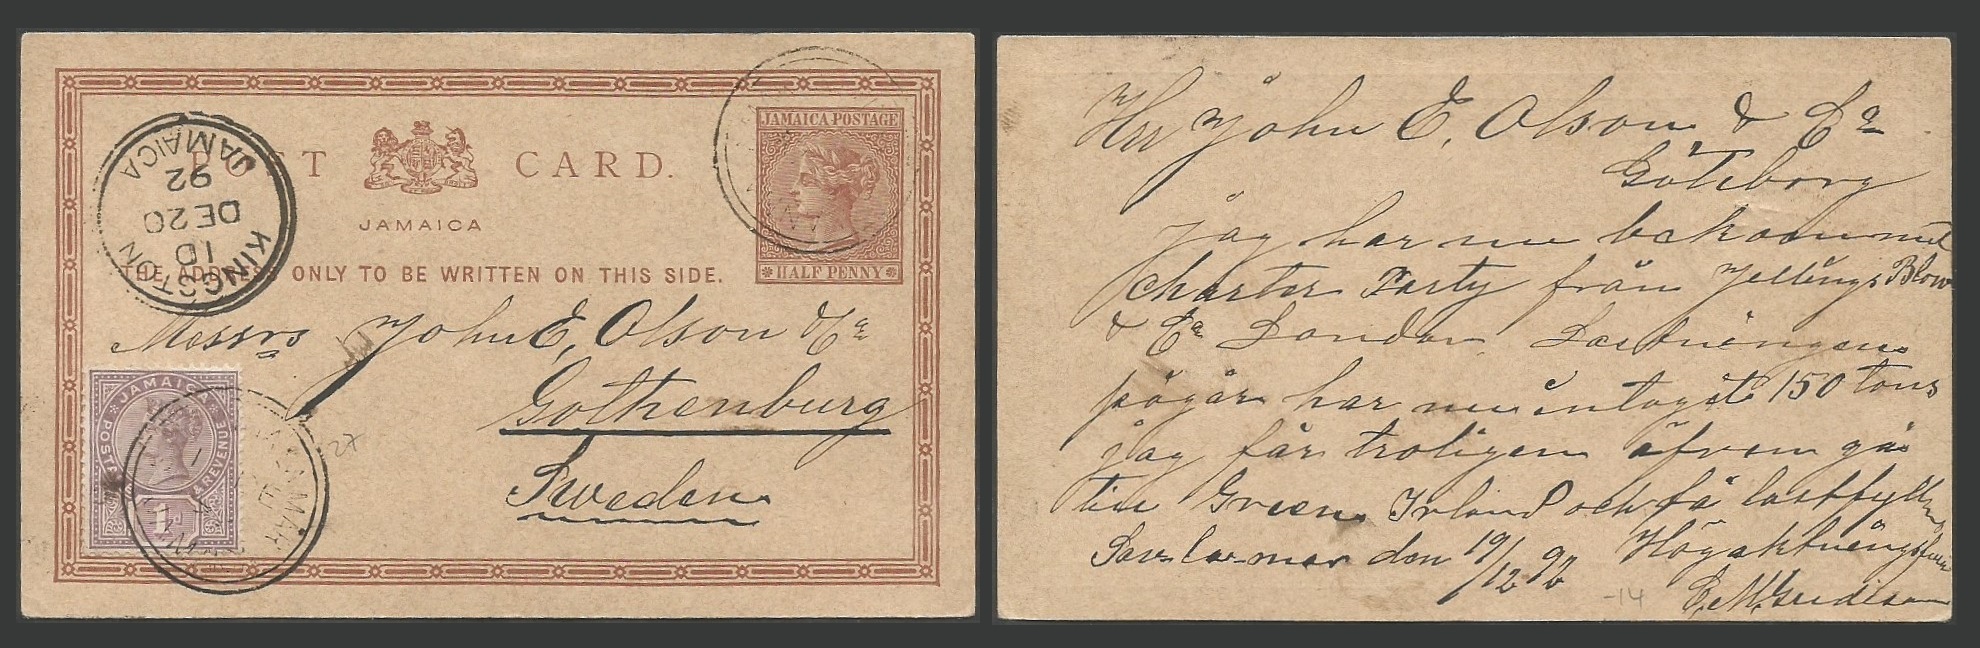 POST CARD.
JAMAICA
THE ADDRESS ONLY TO BE WRITTEN ON THIS SIDE.
JAMAICA POSTAGE
HALF PENNY
KINGSTON
1D
DE 20
92
JAMAICA
Messrs John E. Olson & Co
Gothenburg
Sweden
JAMAICA
POSTAGE & REVENUE
1d
27
Herr John E. Olson & Co
Göteborg
jag har nu bekommit
Charter Party från
& Co London Lastningen
pågår har nu intagit 150 tons
jag får troligen äfven gå
till Green Irland och få lastfylln
Sav-la-mar den 19/12 92 Högaktningsfull
-14